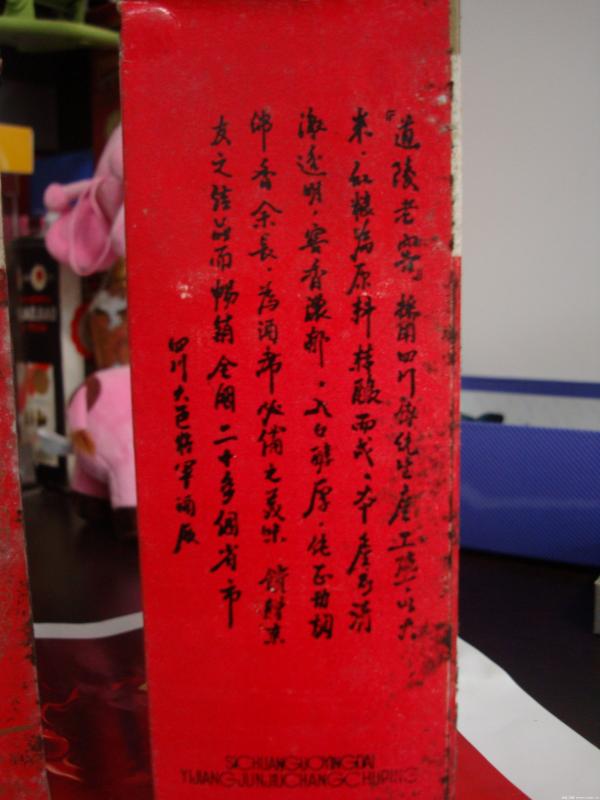 『道陵老窖』採用四川傳統生產工藝,以大
米、紅糧為原料精釀而成、本產品清
澈透明,窖香濃郁,入口醇厚,純正甜
綿香余長,為酒席必備之美味 饋贈亲
友之佳品而暢銷全國二十多個省市
四川大邑將軍酒厰
SICHUANGUOYINGDAI
YIJIANGJUNJIUCHANGCHUPING